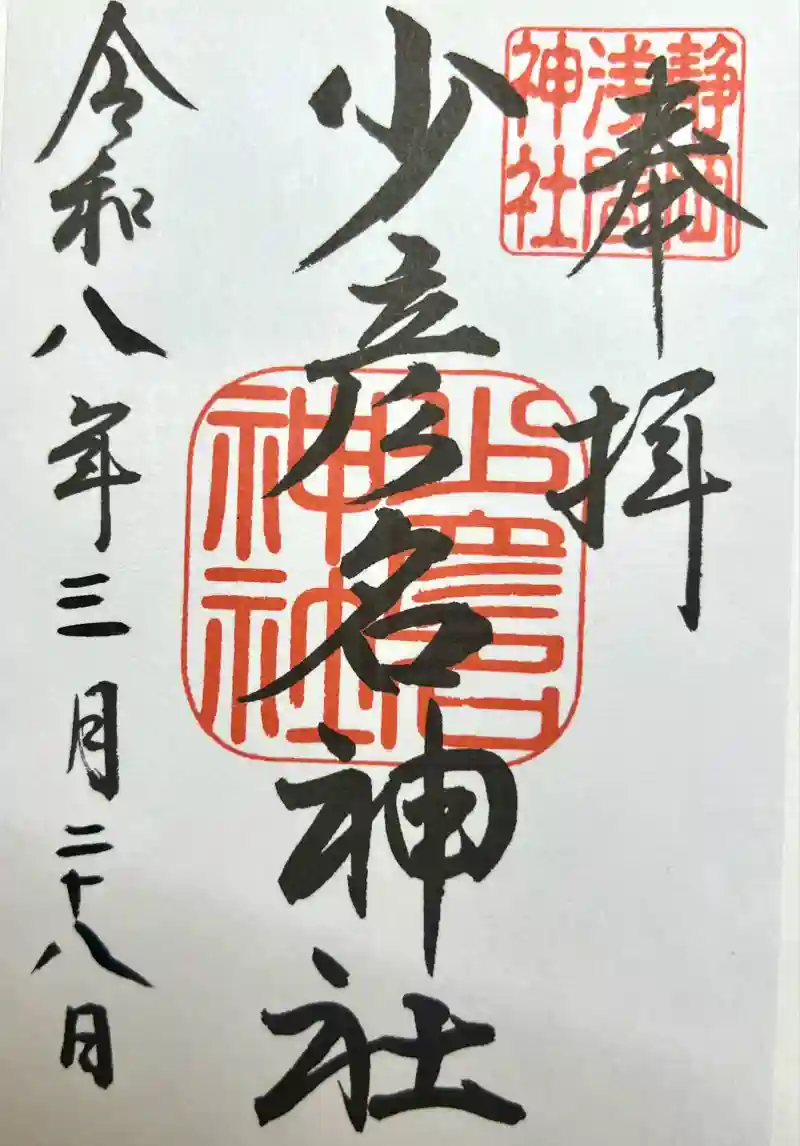 奉拝
静岡
浅間
神社
少彦名神社
少彦名
神社
令和八年三月二十八日